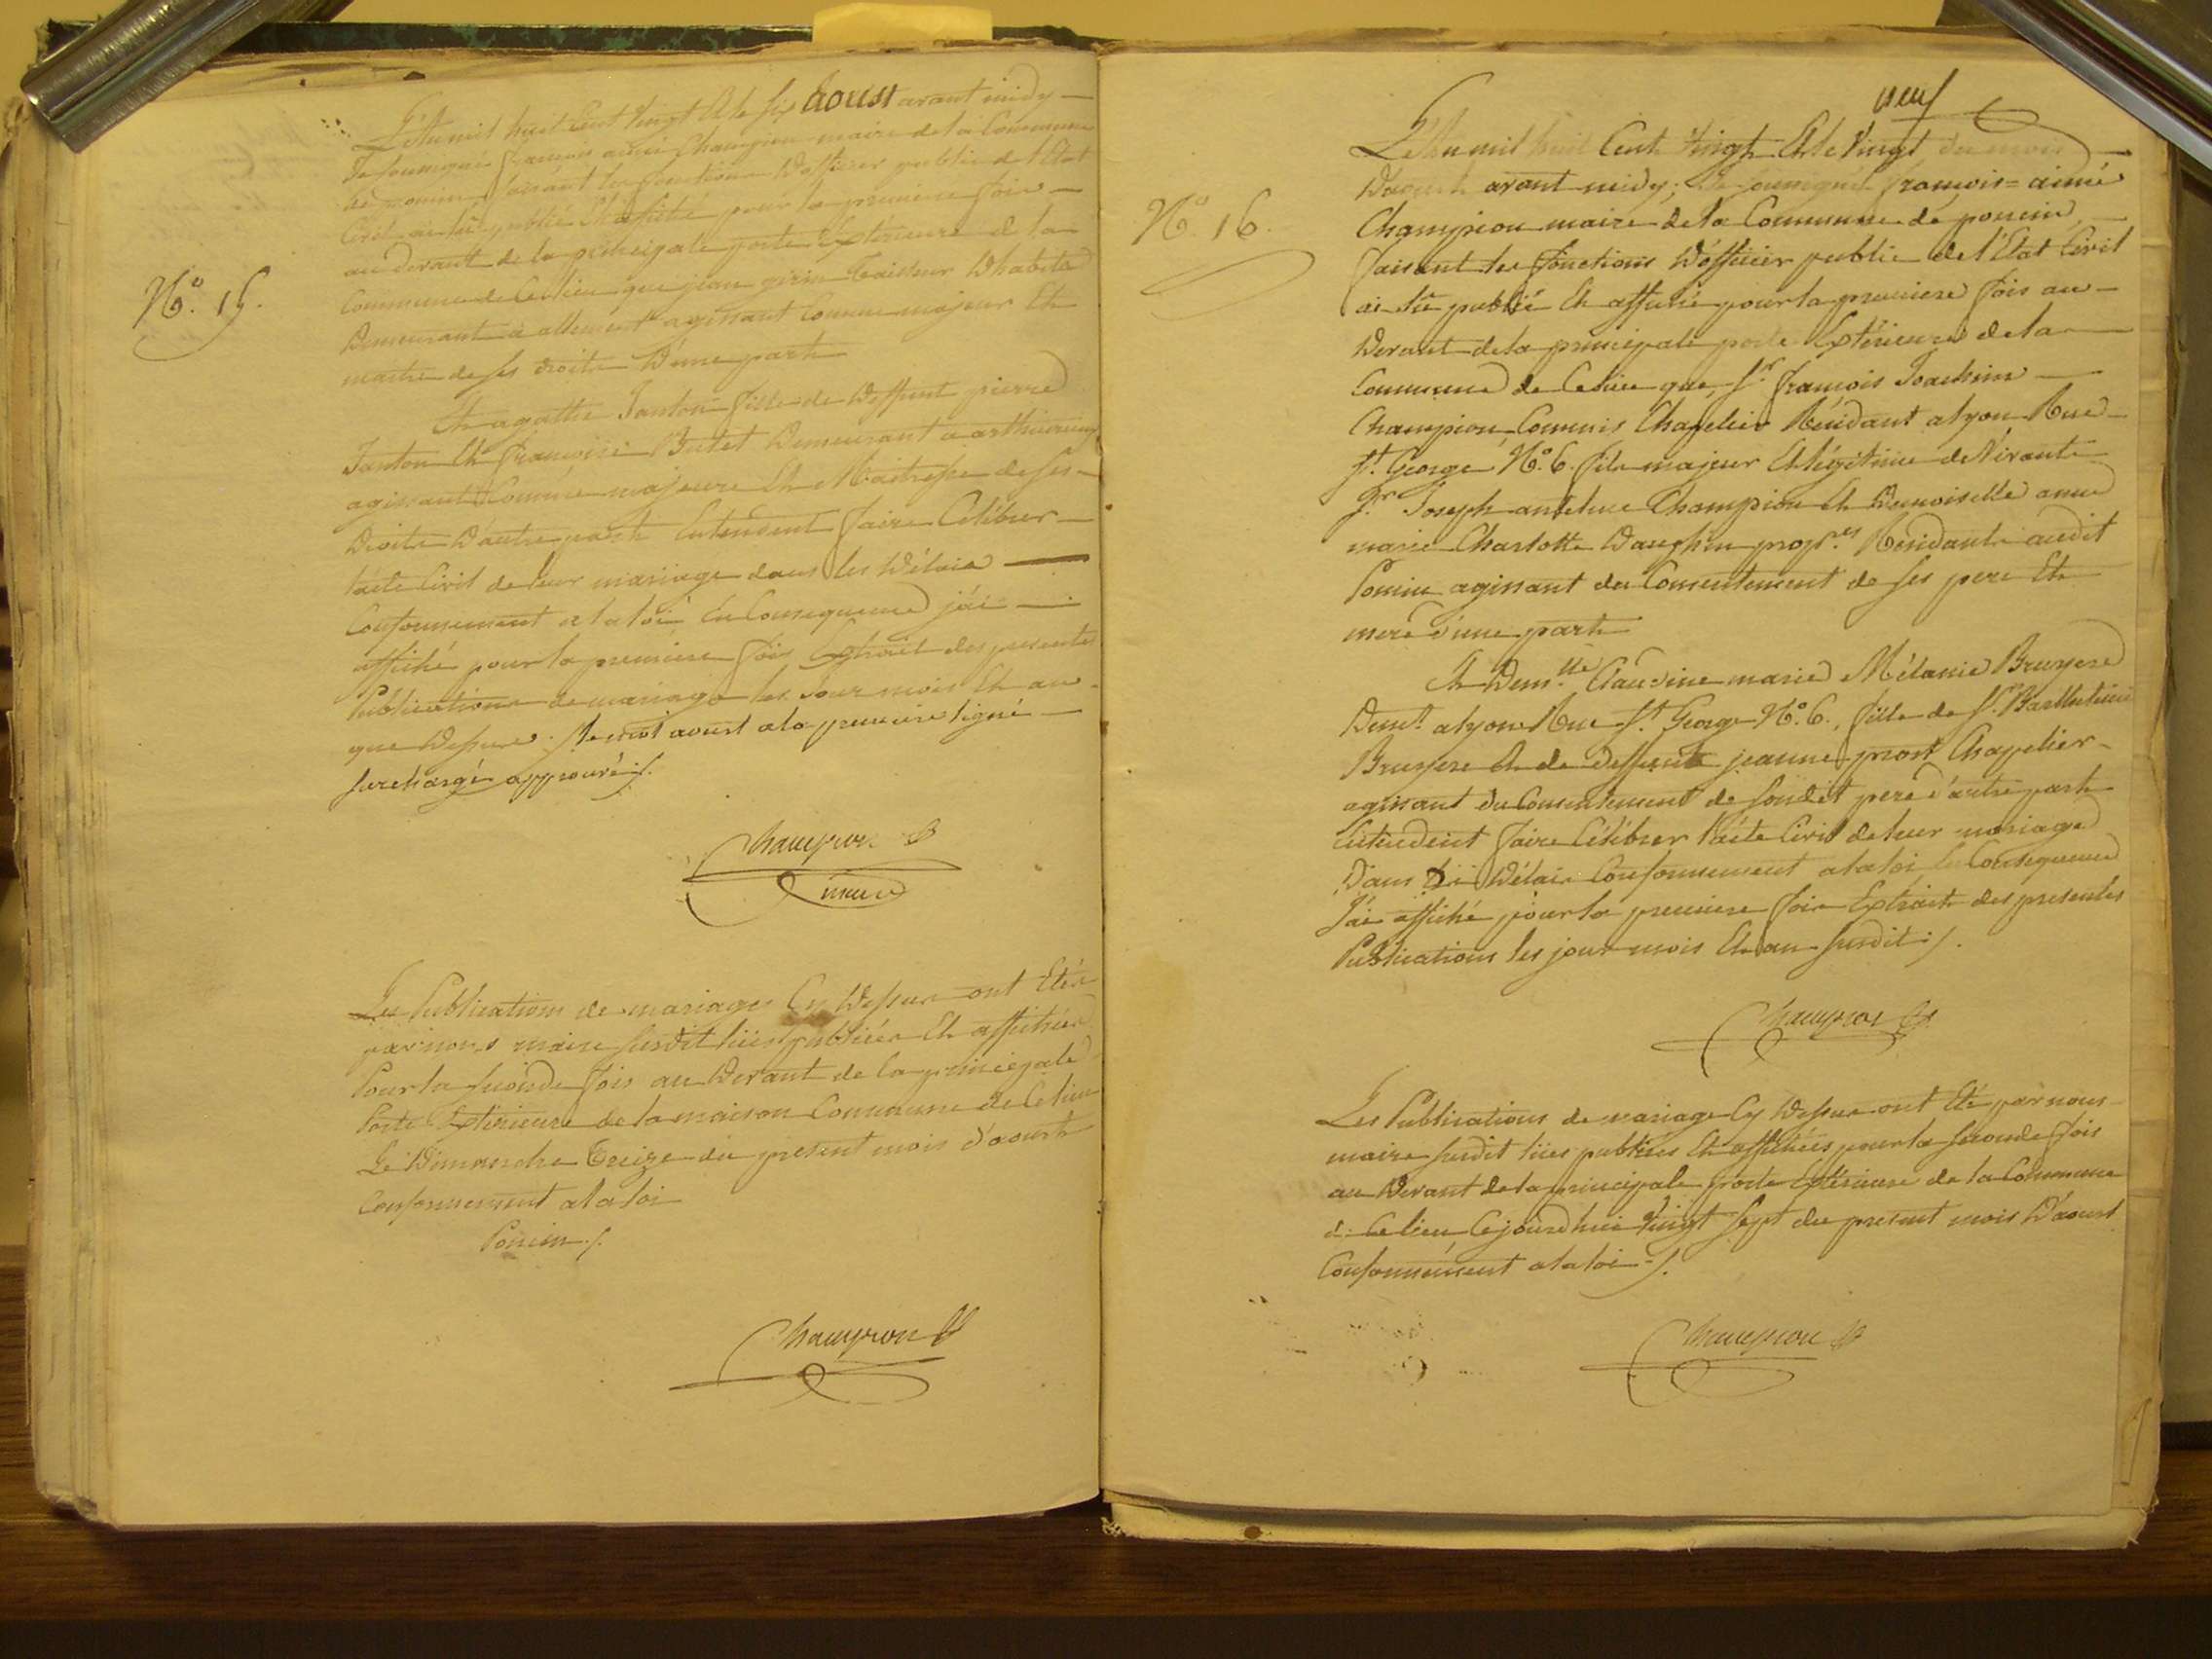 L'An mil huit Cent Vingt Et le Six Aoust avant midy
Je soussigné françois aimé Champion maire de la Commune
de poncin, faisant les fonctions D'officier public de l'Etat
Civil ai lû publié Et affiché pour la premiere fois
au devant de la principale porte Extérieure de la
Commune de Ce lieu que jean girin Tailleur D'habits
N.º 15.
Demeurant à allement agissant Comme majeur Et
maitre de ses droits D'une part
Et agathe Janton fille de Deffunt pierre
Janton Et françoise Butet Demeurant a
agissant Comme majeure Et Maitresse de ses
Droits D'autre part Entendent faire Célébrer
l'acte Civil de leur mariage dans les Délais
Conformement a la loi En Consequence j'ai
affiché pour la premiere fois Extrait des presentes
Publications de mariage les Jour mois Et an
que Dessus. le mot aoust a la premiere ligne
surchargé approuvé ./.
Champion
maire
Les Publications de mariages Cy Dessus ont Etés
par nous maire susdit lües publiées Et affichées
Pour la seconde fois au Devant de la principale
Porte Extérieure de la maison Commune de Ce lieu
Le Dimanche Treize du present mois d'aoust
Conformement a la loi
Poncin ./.
Champion
neuf
L'An mil huit Cent Vingt Et le Vingt du mois
D'aoust avant midy; Je soussigné françois = aimé
N.º 16.
Champion maire de la Commune de poncin,
faisant les fonctions D'officier public de l'Etat Civil
ai lû publié Et affiché pour la premiere fois au
Devant de la principale porte Extérieure de la
Commune de Ce lieu que, S.r françois Joachim
Champion Commis Chapelier Résidant a lyon Rue
S.t George N.º 6. fils majeur Et légitime de Vivants
S.r Joseph anthelme Champion Et Demoiselle anne
marie Charlotte Dauphin prop.res Résidants audit
Poncin agissant du Consentement de ses pere Et
mere d'une part
Et Dem.lle Claudine marie Mélanie Bruyere
Dem.t a lyon Rue S.t George N.º 6., fille de S.r Barthelemi
Bruyere Et de Deffunte jeanne prost Chapelier
agissant du Consentement de sondit pere d'autre part
Entendent faire Célébrer l'acte Civil de leur mariage
Dans les Délais Conformement a la loi, En Consequence
J'ai affiché pour la premiere fois Extrait des presentes
Publications les jour mois Et an susdit ./.
Champion
Les Publications de mariage Cy Dessus ont Eté par nous
maire susdit lües publiées Et affichées pour la seconde fois
au Devant de la principale porte Extérieure de la Commune
de Ce lieu Cejourd'hui Vingt Sept du present mois D'aoust
Conformément a la loi ./.
Champion